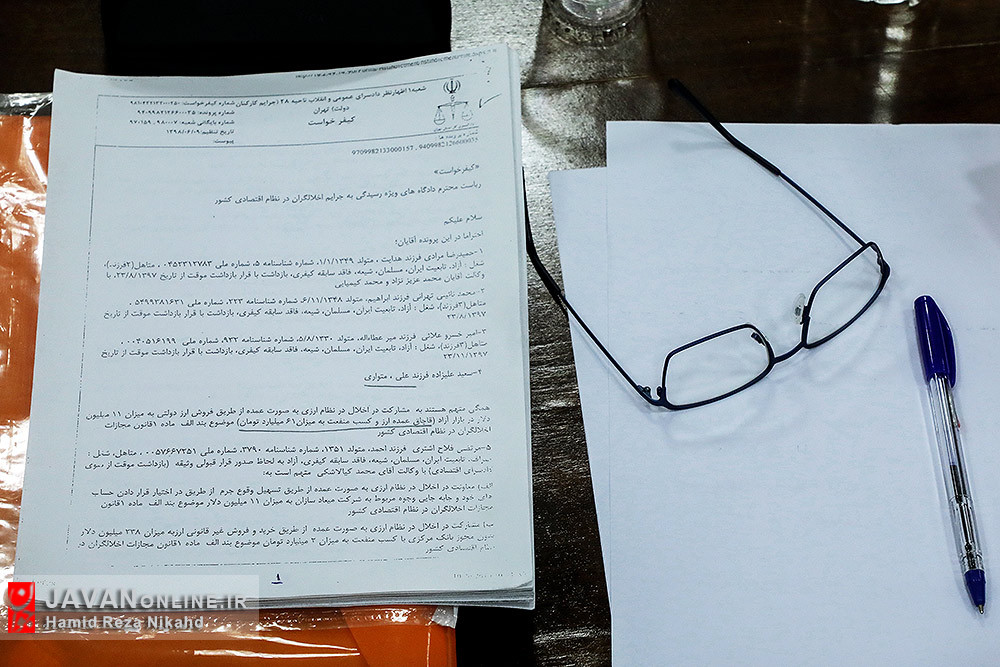 شعبه ۱ اظهارنظر دادسرای عمومی و انقلاب ناحیه ۲۸ (جرایم کارکنان دولت) تهران
کیفر خواست
شماره کیفرخواست:
شماره پرونده:
شماره بایگانی شعبه: ۹۸۰۰۰۷ ، ۹۷۰۱۵۹
تاریخ تنظیم: ۱۳۹۸/۰۶/۰۹
پیوست:
9409982126000035 ، 9709982133000157
«کیفرخواست»
ریاست محترم دادگاه های ویژه رسیدگی به جرایم اخلالگران در نظام اقتصادی کشور
سلام علیکم
احتراما در این پرونده آقایان؛
۱-حمیدرضا مرادی فرزند هدایت ، متولد ۱/۱/۱۳۴۹، شماره شناسنامه ۵، شماره ملی ۰۴۵۲۳۱۲۷۸۳ ، متاهل(۲فرزند)،
شغل : آزاد، تابعیت ایران، مسلمان، شیعه، فاقد سابقه کیفری، بازداشت با قرار بازداشت موقت از تاریخ ۲۳/۸/۱۳۹۷، با
وکالت آقایان محمد عزیز نژاد و محمد کیمیایی
۲- محمد نائیبی تهرانی فرزند ابراهیم، متولد ۶/۱۱/۱۳۴۸، شماره شناسنامه ۲۲۳، شماره ملی ۵۴۹۹۳۸۱۶۳۱ ،
متاهل(۳فرزند)، شغل : آزاد، تابعیت ایران، مسلمان، شیعه، فاقد سابقه کیفری، بازداشت با قرار بازداشت موقت از تاریخ
۲۳/۸/۱۳۹۷
۳-امیر خسرو علائی فرزند میر عطاءاله، متولد ۵/۸/۱۳۳۰، شماره شناسنامه ۹۳۲، شماره ملی ۰۰۴۰۵۱۶۱۹۹ ،
متاهل(۳فرزند)، شغل : آزاد، تابعیت ایران، مسلمان، شیعه، فاقد سابقه کیفری، بازداشت با قرار بازداشت موقت از تاریخ
۲۳/۱۱/۱۳۹۷
۴-سعید علیزاده فرزند علی ، متواری
همگی متهم هستند به مشارکت در اخلال در نظام ارزی به صورت عمده از طریق فروش ارز دولتی به میزان ۱۱ میلیون
دلار در بازار آزاد (قاچاق عمده ارز و کسب منفعت به میزان۶۱ میلیارد تومان) موضوع بند الف ماده ۱قانون مجازات
اخلالگران در نظام اقتصادی کشور
۵-مرتضی فلاح اشتری فرزند احمد، متولد ۱۳۵۱، شماره شناسنامه ۳۷۹۰، شماره ملی ۰۰۵۷۶۶۷۲۵۱ ، متاهل، شغل :
صراف، تابعیت ایران، مسلمان، شیعه، فاقد سابقه کیفری، آزاد به لحاظ صدور قرار قبولی وثیقه (بازداشت موقت از سوی
دادسرای اقتصادی) با وکالت آقای محمد کیالاشکی متهم است به:
الف) معاونت در اخلال در نظام ارزی به صورت عمده از طریق تسهیل وقوع جرم از طریق در اختیار قرار دادن حساب
های خود و جابه جایی وجوه مربوط به شرکت میعاد سازان به میزان ۱۱ میلیون دلار موضوع بند الف ماده ۱قانون
مجازات اخلالگران در نظام اقتصادی کشور
ب) مشارکت در اخلال در نظام ارزی به صورت عمده از طریق خرید و فروش غیر قانونی ارزبه میزان ۲۳۸ میلیون دلار
بدون مجوز بانک مرکزی با کسب منفعت به میزان ۲ میلیارد تومان موضوع بند الف ماده ۱قانون مجازات اخلالگران در
نظام اقتصادی کشور
۱
JAVANONLINE.IR
Hamid Reza Nikahd